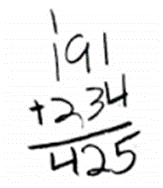 1
191
+234
425